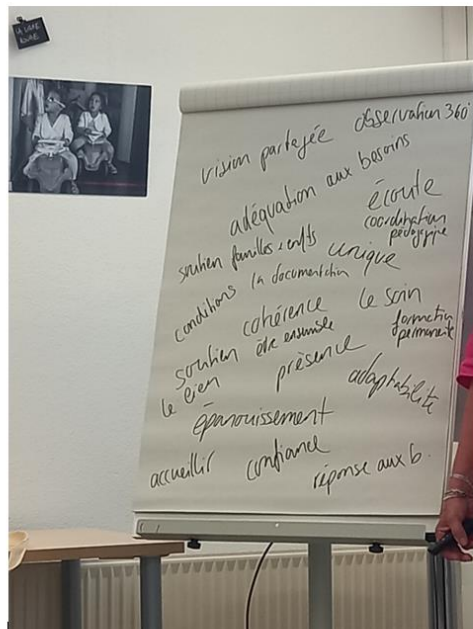 LA LUNE ROUSSE
vision partagée observation 360°
adéquation aux besoins
écoute
coordination pédagogique
soutien familles + enfts unique
conditions la documentation
cohérence le soin
soutien être ensemble formation permanente
le lien présence adaptabilité
épanouissement
accueillir confiance réponse aux b.